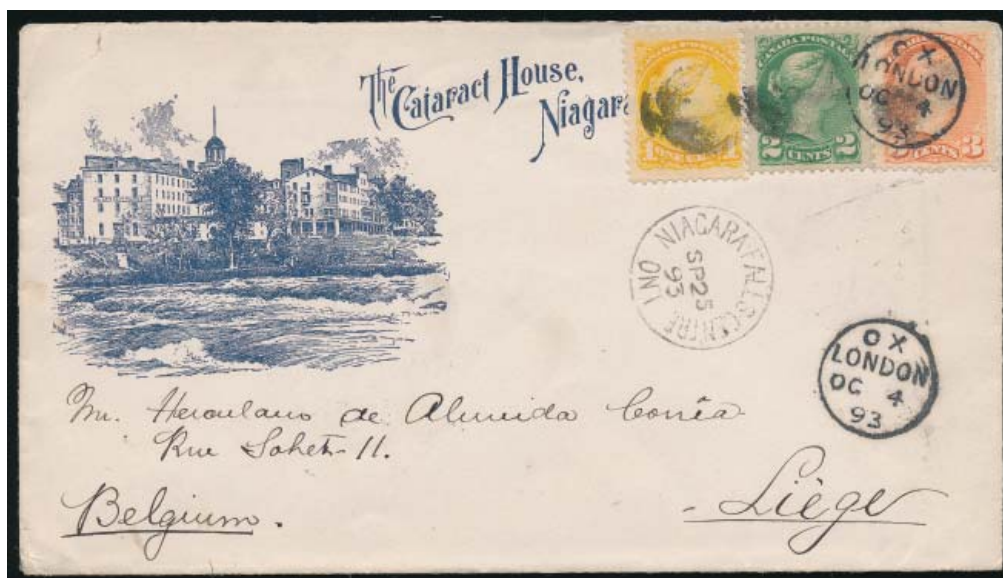 The Cataract House,
Niagara
CANADA POSTAGE
ONE CENT
CANADA POSTAGE
2 CENTS 2
3
OX
LONDON
OC 4
93
NIAGARA FALLS CENTRE
SP 25
93
ONT
OX
LONDON
OC 4
93
Mr. Herculano de Almeida Corrêa
Rue Sohet 11.
Liège
Belgium.